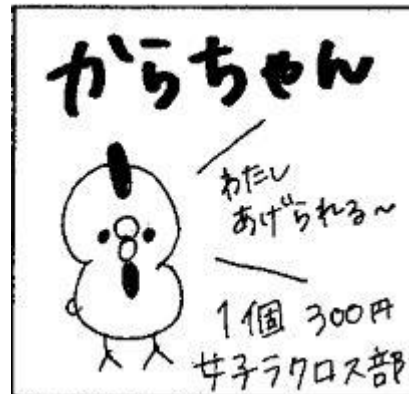 からちゃん
わたし
あげられる～
1個 300円
女子ラクロス部